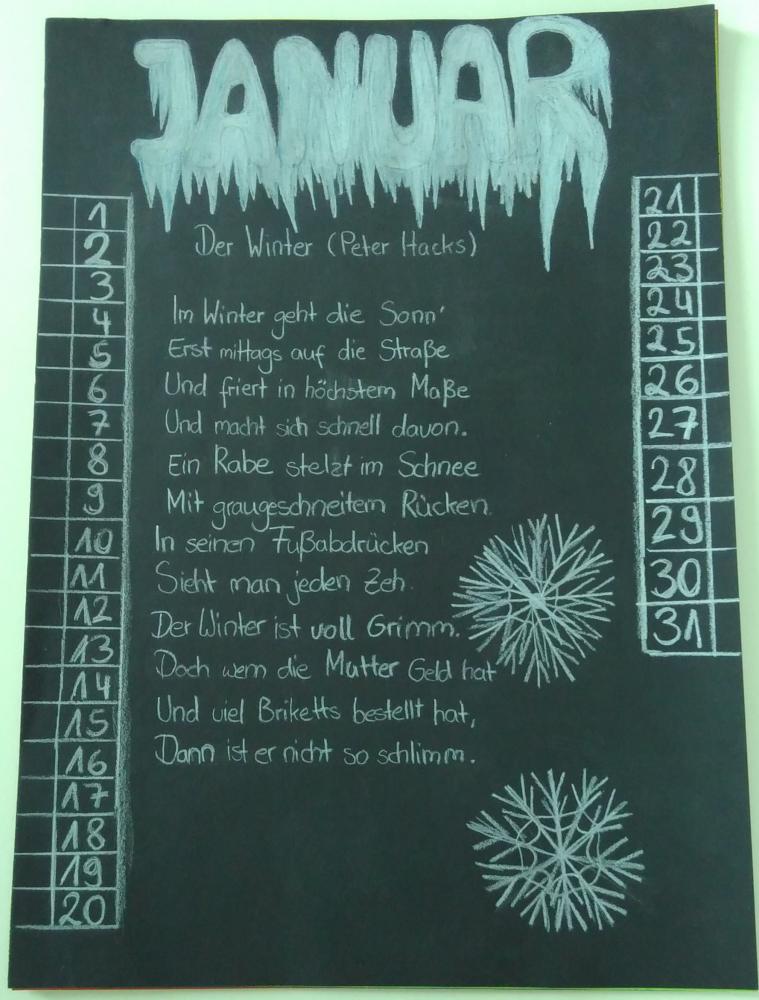 JANUAR
1
2
3
4
5
6
7
8
9
10
11
12
13
14
15
16
17
18
19
20
Der Winter (Peter Hacks)
Im Winter geht die Sonn'
Erst mittags auf die Straße
Und friert in höchstem Maße
Und macht sich schnell davon.
Ein Rabe stelzt im Schnee
Mit graugeschneitem Rücken.
In seinen Fußabdrücken
Sieht man jeden Zeh.
Der Winter ist voll Grimm.
Doch wem die Mutter Geld hat
Und viel Briketts bestellt hat,
Dann ist er nicht so schlimm.
21
22
23
24
25
26
27
28
29
30
31